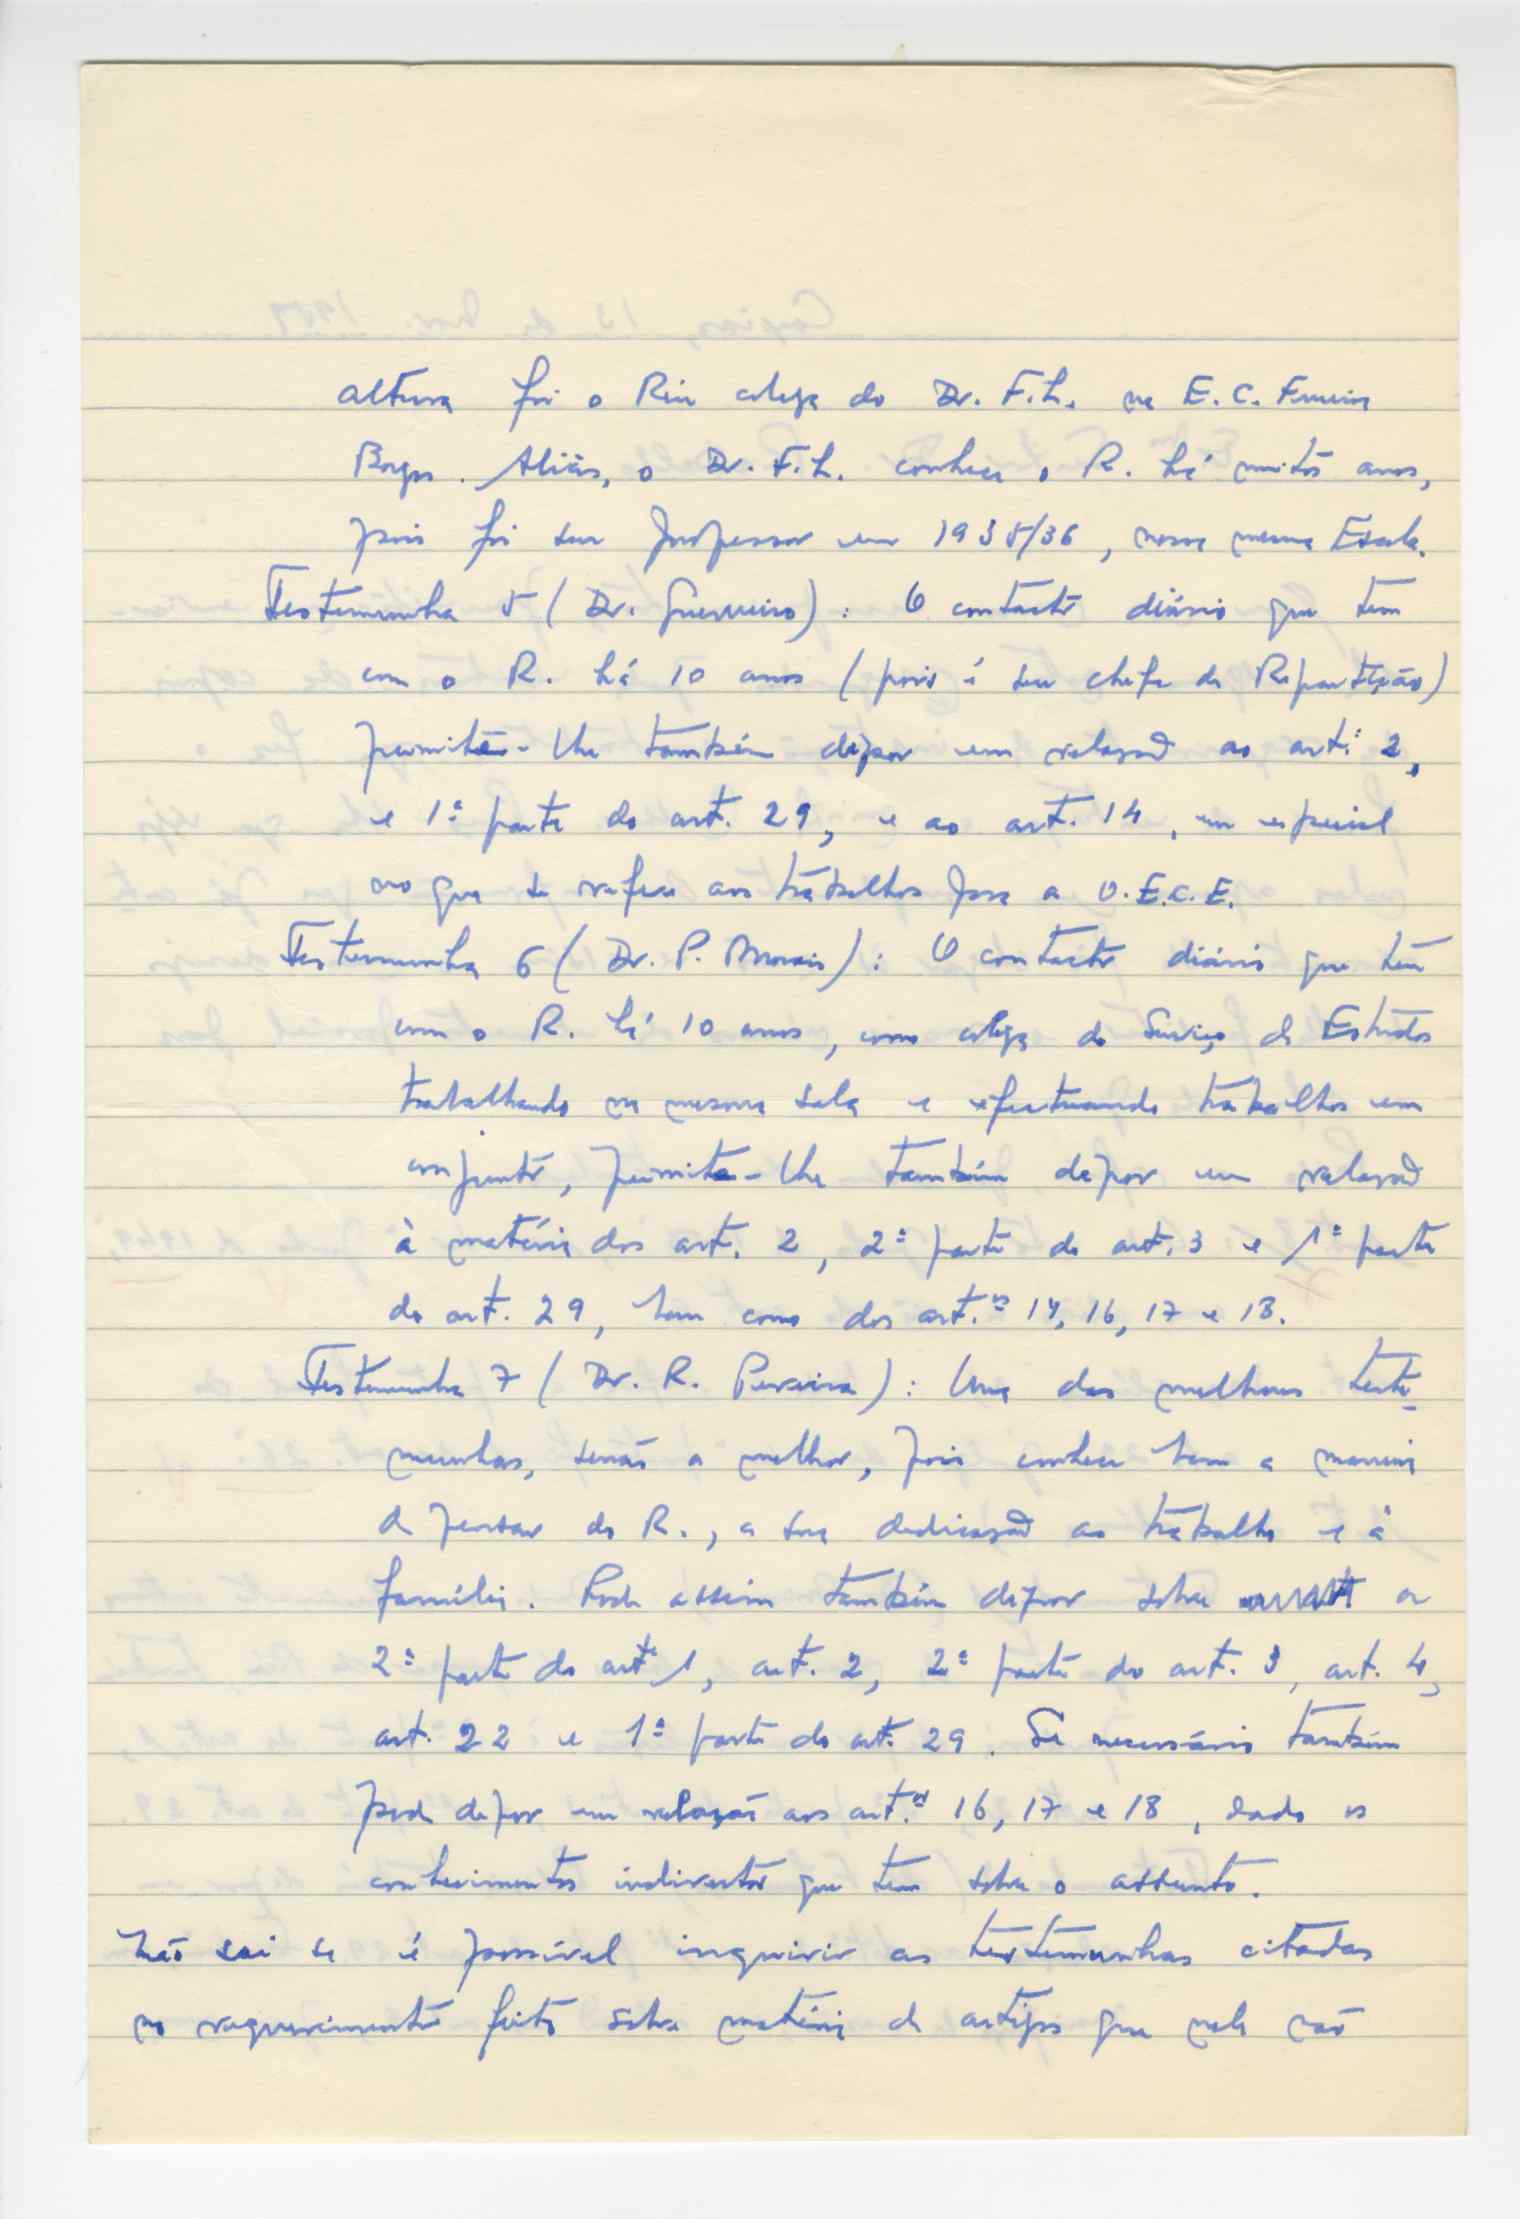 altura foi o Réu colega do Dr. F.L. na E.C. Ferreira
Borges. Aliás, o Dr. F.L. conhece o R. há muitos anos,
pois foi seu professor em 1935/36, nessa mesma Escola.
Testemunha 5 (Dr. Guerreiro): O contacto diário que tem
com o R. há 10 anos (pois é seu chefe de Repartição)
permite-lhe também depor em relação ao art.º 2,
e 1ª parte do art. 29, e ao art. 14, em especial
no que se refere aos trabalhos para a O.E.C.E.
Testemunha 6 (Dr. P. Morais): O contacto diário que tem
com o R. há 10 anos, como colega do Serviço de Estudos
trabalhando na mesma sala e efectuando trabalhos em
conjunto, permite-lhe também depor em relação
à matéria dos art. 2, 2ª parte do art. 3 e 1ª parte
do art. 29, bem como dos art.os 14, 16, 17 e 18.
Testemunha 7 (Dr. R. Pereira): Uma das melhores teste-
munhas, senão a melhor, pois conhece bem a maneira
de pensar do R., a sua dedicação ao trabalho e à
família. Pode assim também depor sobre a
2ª parte do artº 1, art. 2, 2ª parte do art. 3, art. 4,
art. 22 e 1ª parte do art. 29. Se necessário também
pode depor em relação aos art.os 16, 17 e 18, dado os
conhecimentos indirectos que tem sobre o assunto.
Não sei se é possível inquirir as testemunhas citadas
no requerimento feito sobre matéria de artigos que nele não